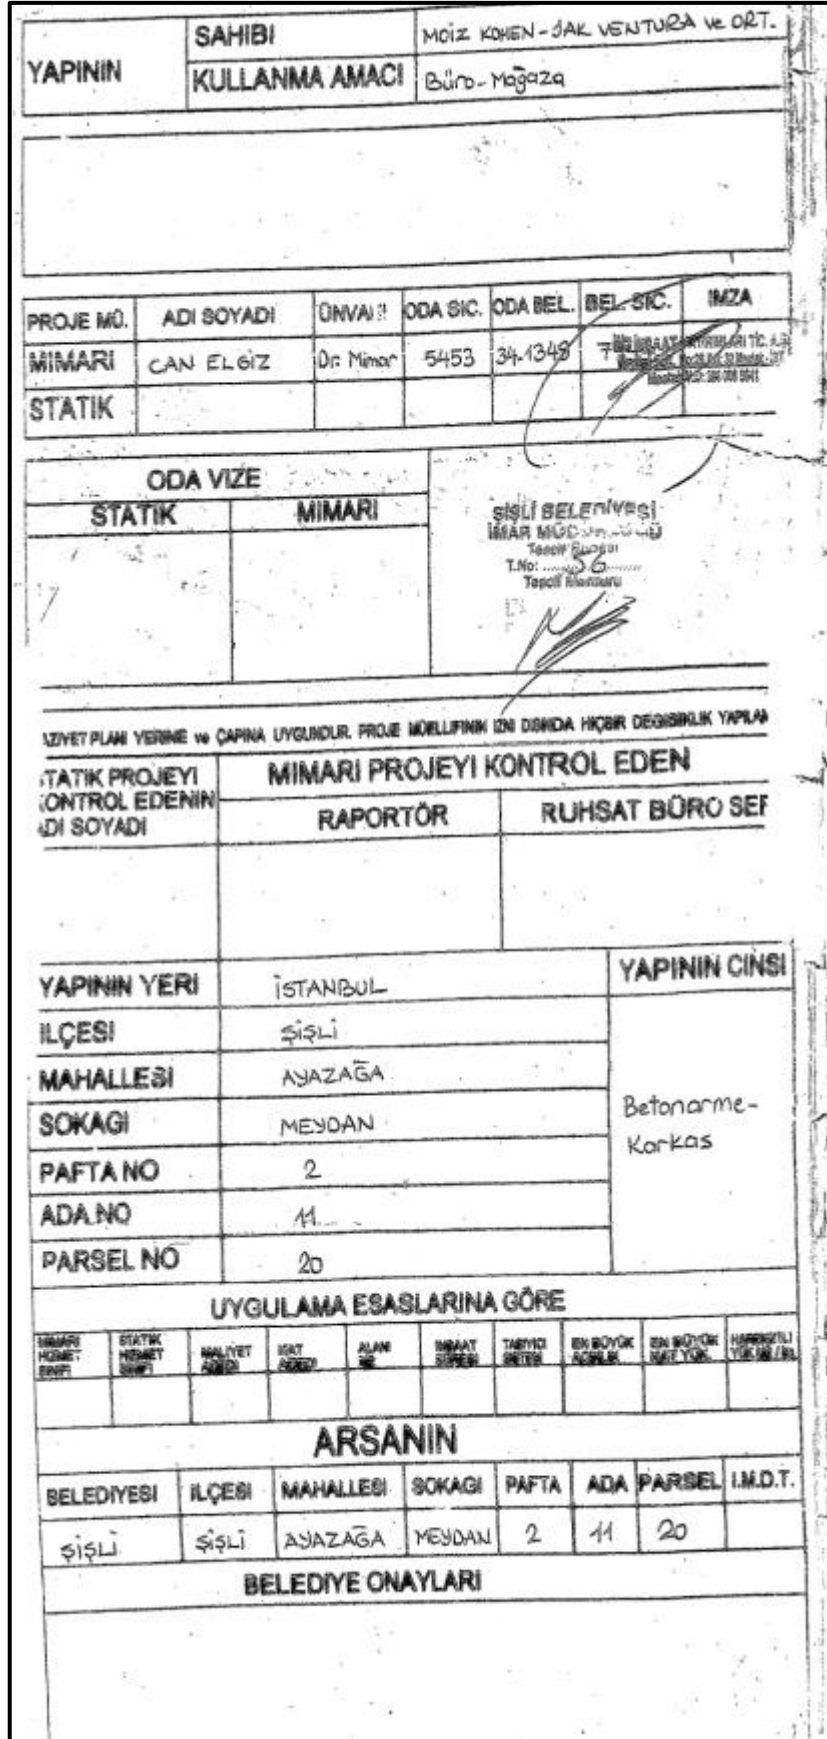 YAPININ
SAHIBI
MOİZ KOHEN-JAK VENTURA ve ORT.
KULLANMA AMACI
Büro-Mağaza
PROJE MÜ. ADI SOYADI ÜNVANI ODA SIC. ODA BEL. BEL. SIC. IMZA
MIMARI CAN ELGİZ Dr. Mimar 5453 34-1348
STATIK
ODA VIZE
STATIK MIMARI
ŞİŞLİ BELEDİYESİ
İMAR MÜDÜRLÜĞÜ
T.No: 56
AZIYET PLANI YERINE ve ÇAPINA UYGUNDUR. PROJE MÜELLIFININ IZNI DISINDA HIÇBIR DEGISIKLIK YAPILAM
TATIK PROJEYI
KONTROL EDENIN
ADI SOYADI
MIMARI PROJEYI KONTROL EDEN
RAPORTÖR RUHSAT BÜRO SEF
YAPININ YERI İSTANBUL
YAPININ CINSI
ILÇESI ŞİŞLİ
MAHALLESI AYAZAĞA
SOKAGI MEYDAN
Betonarme-
Karkas
PAFTA NO 2
ADA NO 11
PARSEL NO 20
UYGULAMA ESASLARINA GÖRE
MIMARI HIZMET SINIFI
STATIK HIZMET SINIFI
MALIYET ADEDI
KAT ADEDI
ALANI M2
INSAAT SÜRESI
TASIYICI SISTEMI
EN BÜYÜK AÇIKLIK
EN BÜYÜK KAT YÜK.
ARSANIN
BELEDIYESI ILÇESI MAHALLESI SOKAGI PAFTA ADA PARSEL I.M.D.T.
ŞİŞLİ ŞİŞLİ AYAZAĞA MEYDAN 2 11 20
BELEDIYE ONAYLARI